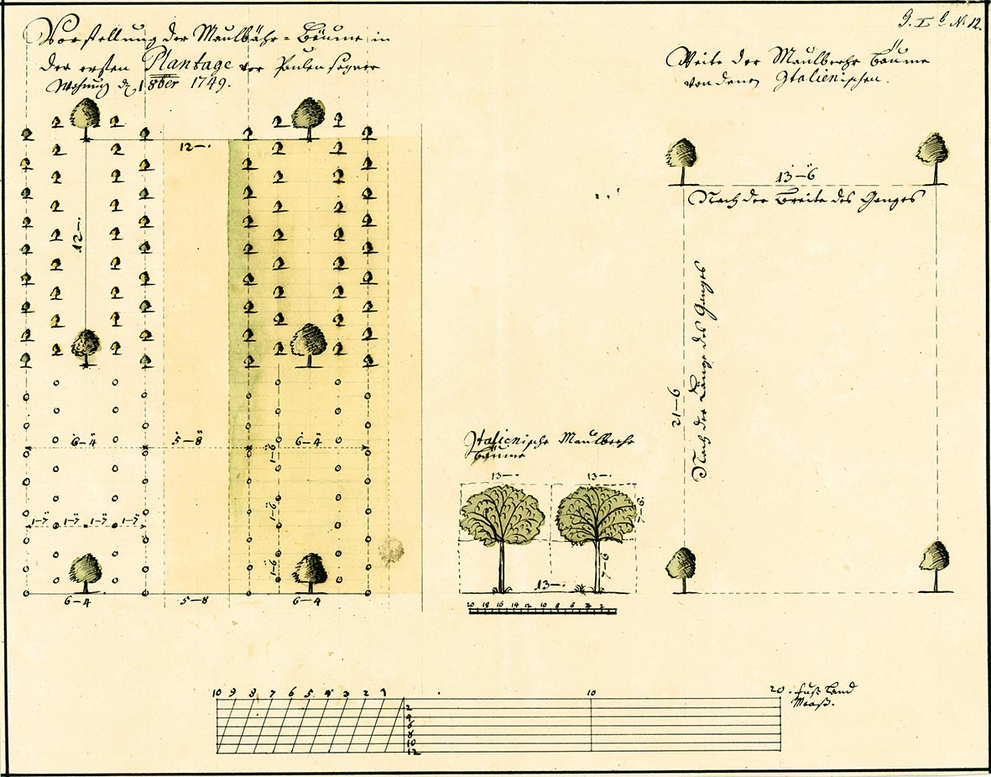 J. I. b. N. 12.
Vorstellung der Maulbähr-Bäume in
der ersten Plantage vor
1749.
Weite der Maulberr Bäume
von denen Italienischen.
12—.
12—.
6—4
5—8
6—4
1—6
1—6
1—6
1—7 1—7 1—7 1—7
6—4
5—8
6—4
13—6
Nach der Breite des Ganges
21—6
Nach der Länge des Ganges
Italienische Maulberr
Bäume
13—. 13—.
7—6
7—6
13—.
20 18 16 14 12 10 8 6 4 2
10 9 8 7 6 5 4 3 2 1
10
20. Fuß Land
Maaß.
2
4
6
8
10
12